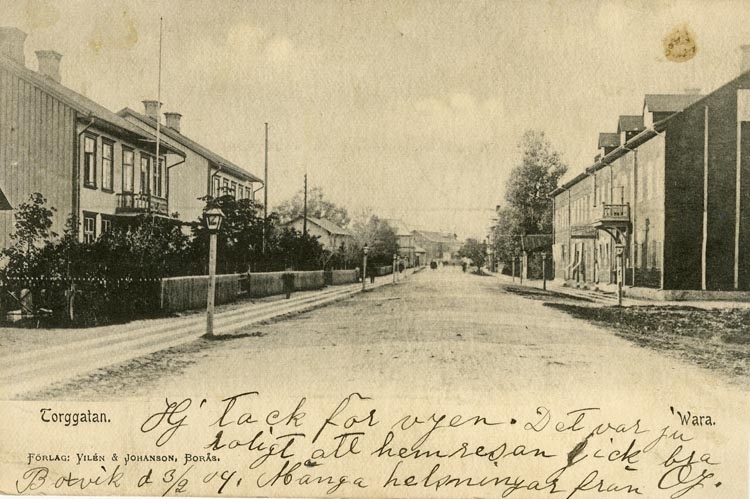 Torggatan.
Wara.
Hj tack för vyen. Det var ju
roligt att hemresan gick bra
FÖRLAG: VILÉN & JOHANSON, BORÅS.
d 3/2 04. Många helsningar från